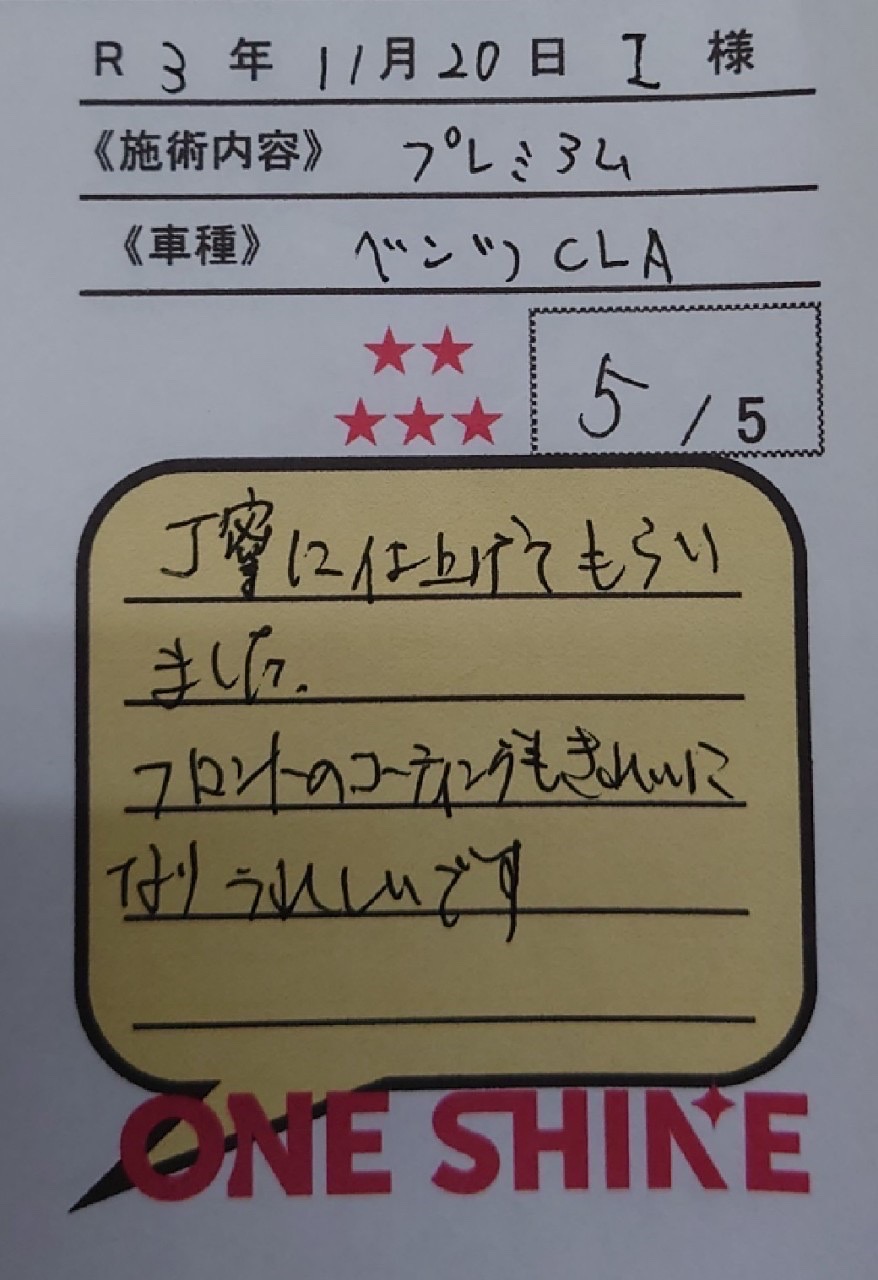 R 3 年 11月20日 I 様
《施術内容》 プレミアム
《車種》 ベンツ CLA
★★
★★★
5 / 5
丁寧に仕上げてもらい
ました.
フロントのコーティングもきれいに
なりうれしいです
ONE SHINE